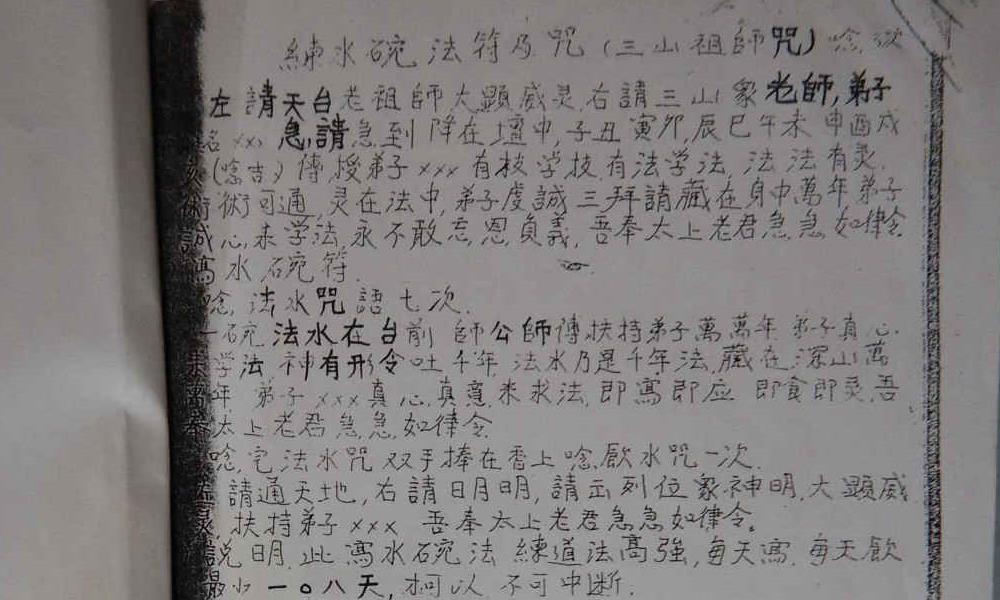 練水碗法符乃咒(三山祖師咒)唸
左請天台老祖師大顯威灵右請三山眾老師,弟子
名xx,急請急到降在壇中,子丑寅卯,辰巳午未申酉戌
亥(唸吉)傳授弟子xxx有枝学技,有法学法,法法有灵
術術可通,灵在法中,弟子虔誠三拜請藏在身中萬年,弟子
誠心求学法,永不敢忘恩負義,吾奉太上老君急急如律令
寫水碗符.
唸,法水咒語七次.
一碗法水在台前師公師傅扶持弟子萬萬年弟子真心
求学法神有形令吐千年法水乃是千年法,藏在深山萬
萬年弟子xxx真心真意來求法,即寫即应即食即灵,吾
奉太上老君急急如律令
唸,完法水咒双手捧在香上唸飲水咒一次.
請通天地,右請日月明,請出列位眾神明大顯威
灵扶持弟子xxx吾奉太上老君急急如律令。
說明.此寫水碗法練道法高強,每天寫,每天飲
最少一〇八天,才可以不可中断.